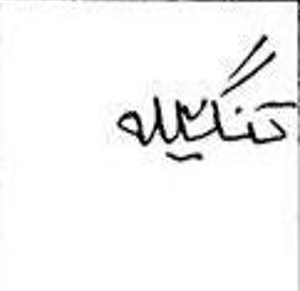 تنگیله